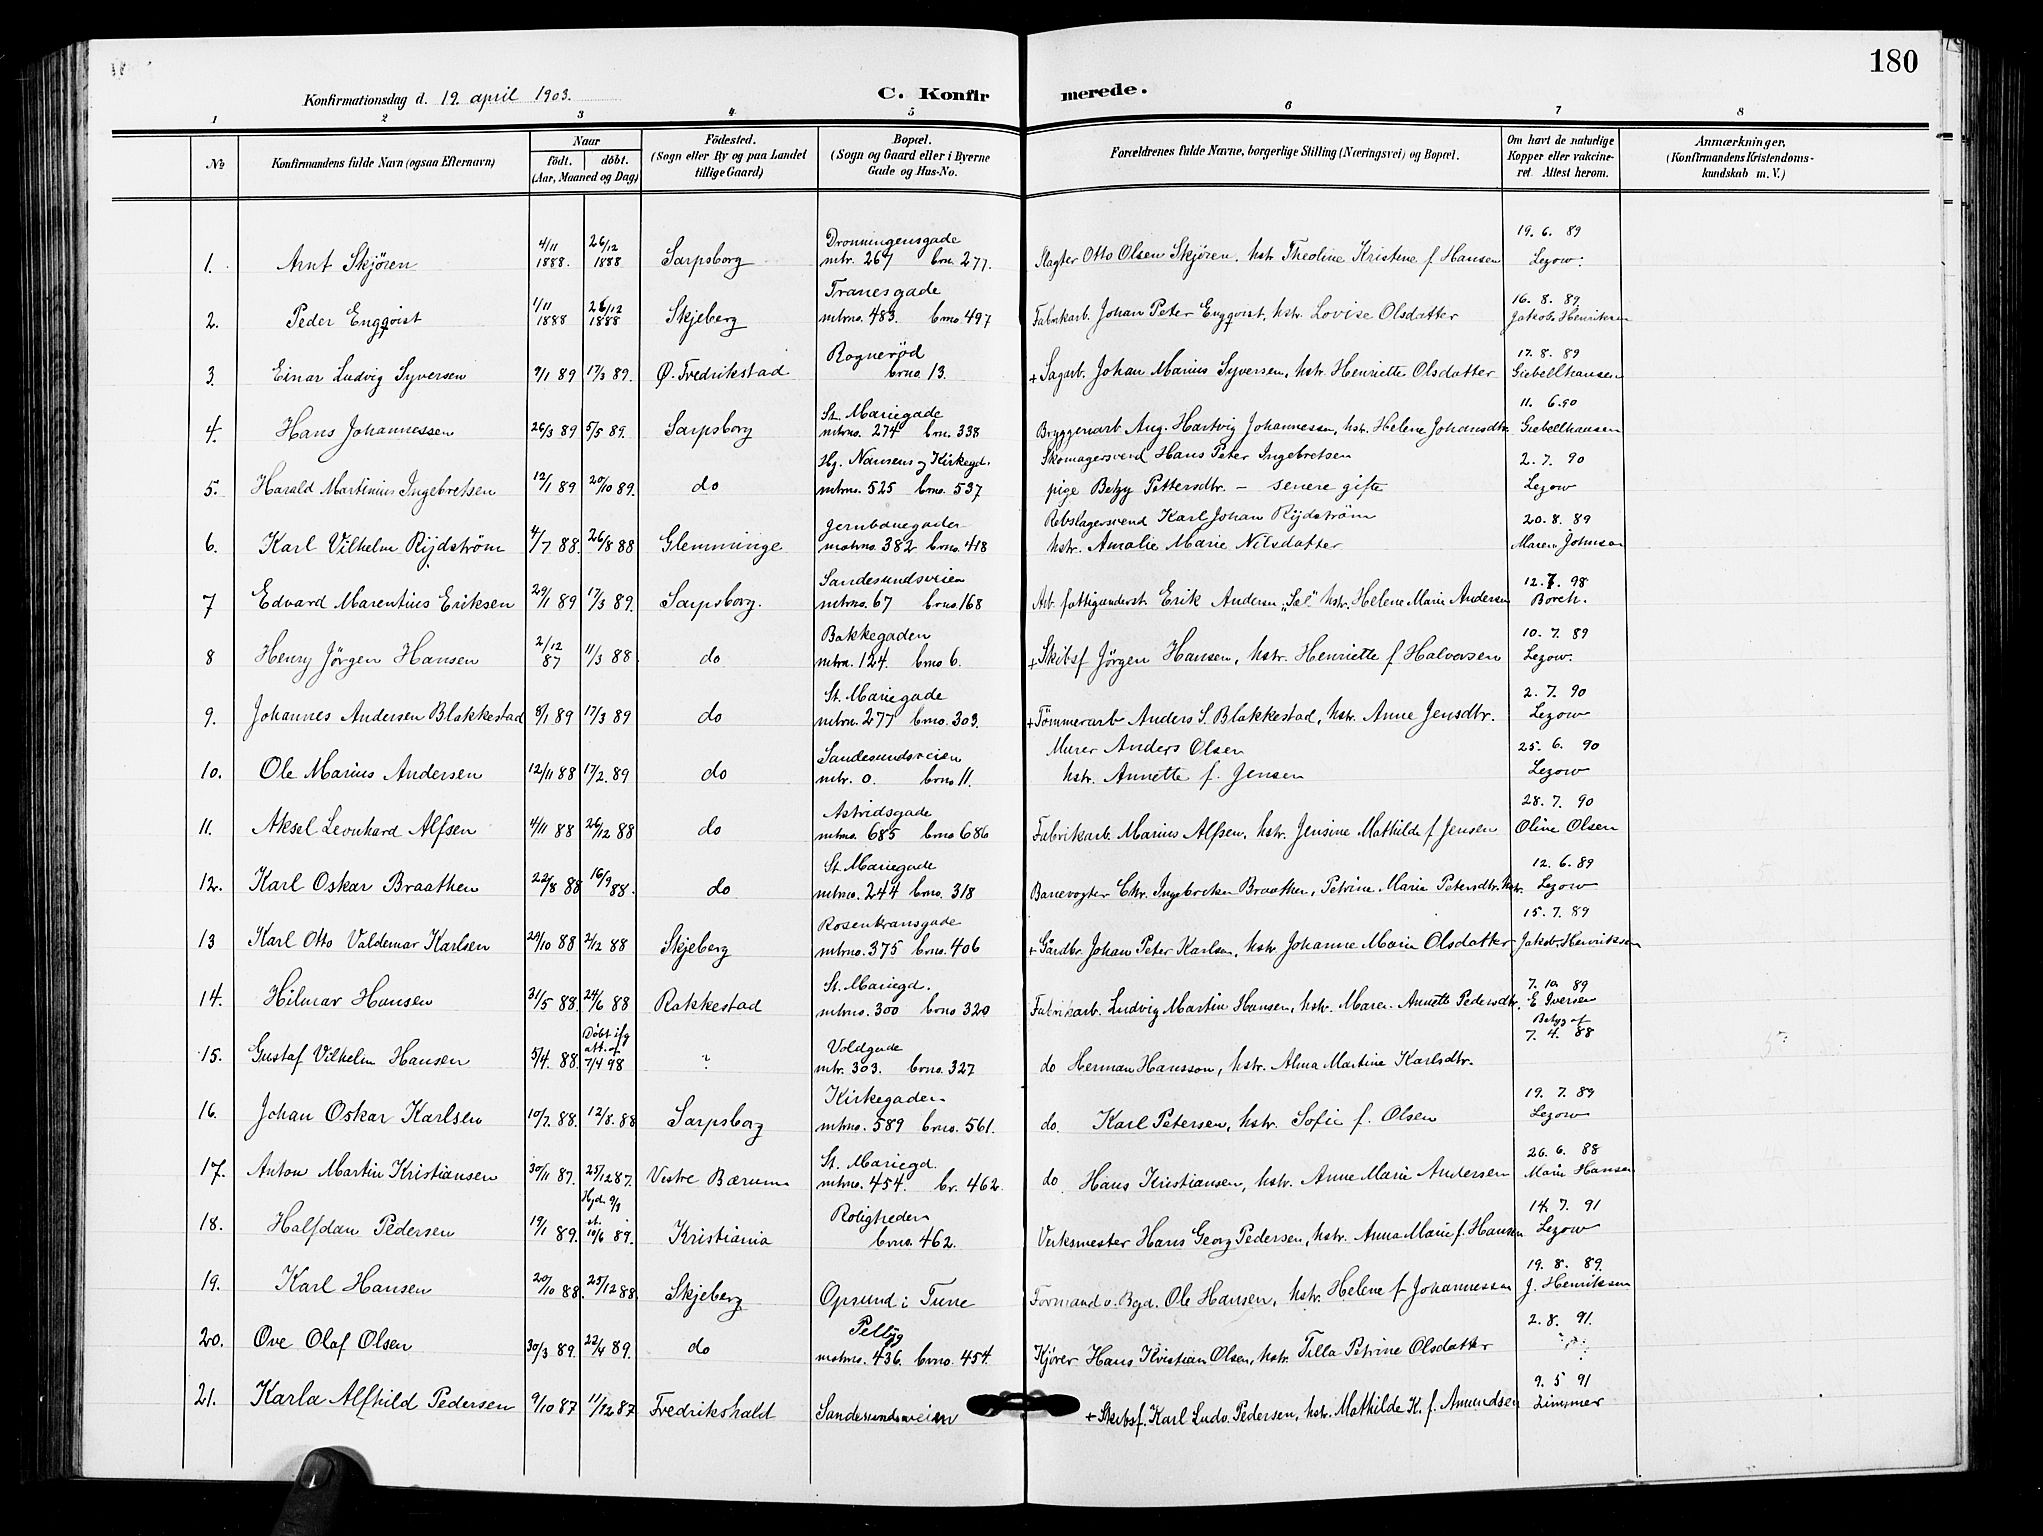 180
Konfirmationsdag d. 19. april 1903.
C. Konfir
merede.
1 2 3 4 5 6 7 8
No
Konfirmandens fulde Navn (ogsaa Efternavn)
Naar
födt. döbt.
(Aar, Maaned og Dag)
Födested.
(Sogn eller By og paa Landet
tillige Gaard)
Bopæl.
(Sogn og Gaard eller i Byerne
Gade og Hus-No.
Forældrenes fulde Navne, borgerlige Stilling (Næringsvei) og Bopæl.
Om havt de naturlige
Kopper eller vakcine-
ret Attest herom.
Anmærkninger,
(Konfirmandens Kristendoms-
kundskab m. V.)
Dronningensgade 19. 6. 89
1. Arnt Skjören 4/11 1888. 26/12 1888 Sarpsborg mtr. 267 brn. 277. Slagter Otto Olsen Skjören, hstr. Theoline Kristine f. Hansen Lezow.
Tranesgade 16. 8. 89
2. Peder Engqvist 1/11 1888 26/12 1888 Skjeberg mtrno. 483. brno. 497 Fabrikarb. Johan Peter Engqvist, hstr. Lovise Olsdatter Jakob Henriksen
Rognerød 17. 8. 89
3. Einar Ludvig Syversen 9/1 89 17/3 89. Ø. Fredrikstad brno. 13. + Sagarb. Johan Marius Syversen, hstr. Henriette Olsdatter Giebelhausen
St. Mariegade 11. 6. 90
4. Hans Johannessen 26/3 89 5/5 89. Sarpsborg mtrno. 274 brn. 338 Bryggeriarb. Aug. Hartvig Johannessen, hstr. Helene Johansdtr. Giebelhausen
Hj. Nansens og Kirkegd. Skomagersvend Hans Peter Ingebretsen 2. 7. 90
5. Harald Martinius Ingebretsen 12/1 89 20/10 89. do mtrno. 525 brno. 537 pige Betzy Pettersdtr. – senere gifte Lezow
Jernbanegaden Rebslagersvend Karl Johan Rijdström 20. 8. 89
6. Karl Vilhelm Rijdström 4/7 88. 26/8 88 Glemminge matrno. 382 brno. 418 hstr. Amalie Marie Nilsdatter Maren Johnsen
Sandesundsveien 12. 7. 98
7 Edvard Marentius Eriksen 29/1 89 17/3 89. Sarpsborg. mtrno. 67 brno. 168 Arb. fattigunderst. Erik Andersen „Sæl" hstr. Helene Marie Andersen Borch.
Bakkegaden 10. 7. 89
8 Henry Jörgen Hansen 2/12 87 11/3 88 do mtrn. 124. brno 6. + Skibsf. Jörgen Hansen, hstr. Henriette f. Halvorsen Lezow.
St. Mariegade 2. 7. 90
9. Johannes Andersen Blakkestad 8/1 89 17/3 89 do mtrn. 277 brno. 303. + Tömmerarb Anders S. Blakkestad, hstr. Anne Jensdtr. Lezow
Sandesundsveien Murer Anders Olsen 25. 6. 90
10. Ole Marius Andersen 12/11 88 17/2 89 do mtr. 0. brno 11. hstr. Annette f. Jensen Lezow
Astridsgade 28. 7. 90
11. Aksel Leonhard Alfsen 4/11 88 26/12 88 do mtrno. 685 brno 686 Fabrikarb. Marius Alfsen, hstr. Jensine Mathilde f. Jensen Oline Olsen
St. Mariegade 12. 6. 89
12. Karl Oskar Braathen 22/8 88 16/9 88. do mtrno. 244 brno. 318 Banevogter Chr. Ingebretsen Braathen, Petrine Marie Petersdtr. hstr. Lezow
Rosenkransgade 15. 7. 89
13 Karl Otto Valdemar Karlsen 20/10 88 2/12 88 Skjeberg mtrno. 375 brno. 406 + Gårdbr. Johan Peter Karlsen, hstr. Johanne Marie Olsdatter Jakob Henriksen
St. Mariegd. 7. 10. 89
14. Hilmar Hansen 31/5 88. 24/6 88 Rakkestad mtrno. 300 brno 320 Fabrikarb. Ludvig Martin Hansen, hstr. Maren Annette Pedersdtr. E. Iversen
Döbt ifg att. af Voldgade Betyg af 7. 4. 88
15. Gustaf Vilhelm Hansen 5/4. 88. 7/4 98 ? mtr. 303. brno. 327 do Herman Hansson, hstr. Alma Martine Karlsdtr.
Kirkegaden 19. 7. 89
16. Johan Oskar Karlsen 10/7. 88. 12/8. 88 Sarpsborg mtrno. 589 brno. 561. do. Karl Petersen, hstr. Sofie f. Olsen Lezow
St. Mariegd. 26. 6. 88
17. Anton Martin Kristiansen 30/11 87. 25/12 87. Vestre Bærum mtrno. 454. br. 462. do Hans Kristiansen, hstr. Anne Marie Andersen Marie Hansen
Hjd. 9/3 Roligheden 14. 7. 91
18. Halfdan Pedersen 19/1 89. st. 10/6 89. Kristiania brno. 462. Verksmester Hans Georg Pedersen, hstr. Anna Marie f. Hansen Lezow
19. 8. 89.
19. Karl Hansen 20/10 88. 25/12 88. Skjeberg Opsund i Tune Formand v. Bgd. Ole Hansen, hstr. Helene f. Johannessen J. Henriksen
Pellyg 2. 8. 91.
20. Ove Olaf Olsen 30/3 89. 22/4 89. do matrno. 436. brno. 454. Kjörer Hans Kristian Olsen, hstr. Tilla Petrine Olsdatter
9. 5 91
21. Karla Alfhild Pedersen 9/10 87 11/12 87 Fredrikshald Sandesundsveien + Skibsf. Karl Ludv. Pedersen, hstr. Mathilde K. f. Amundsen Zimmer